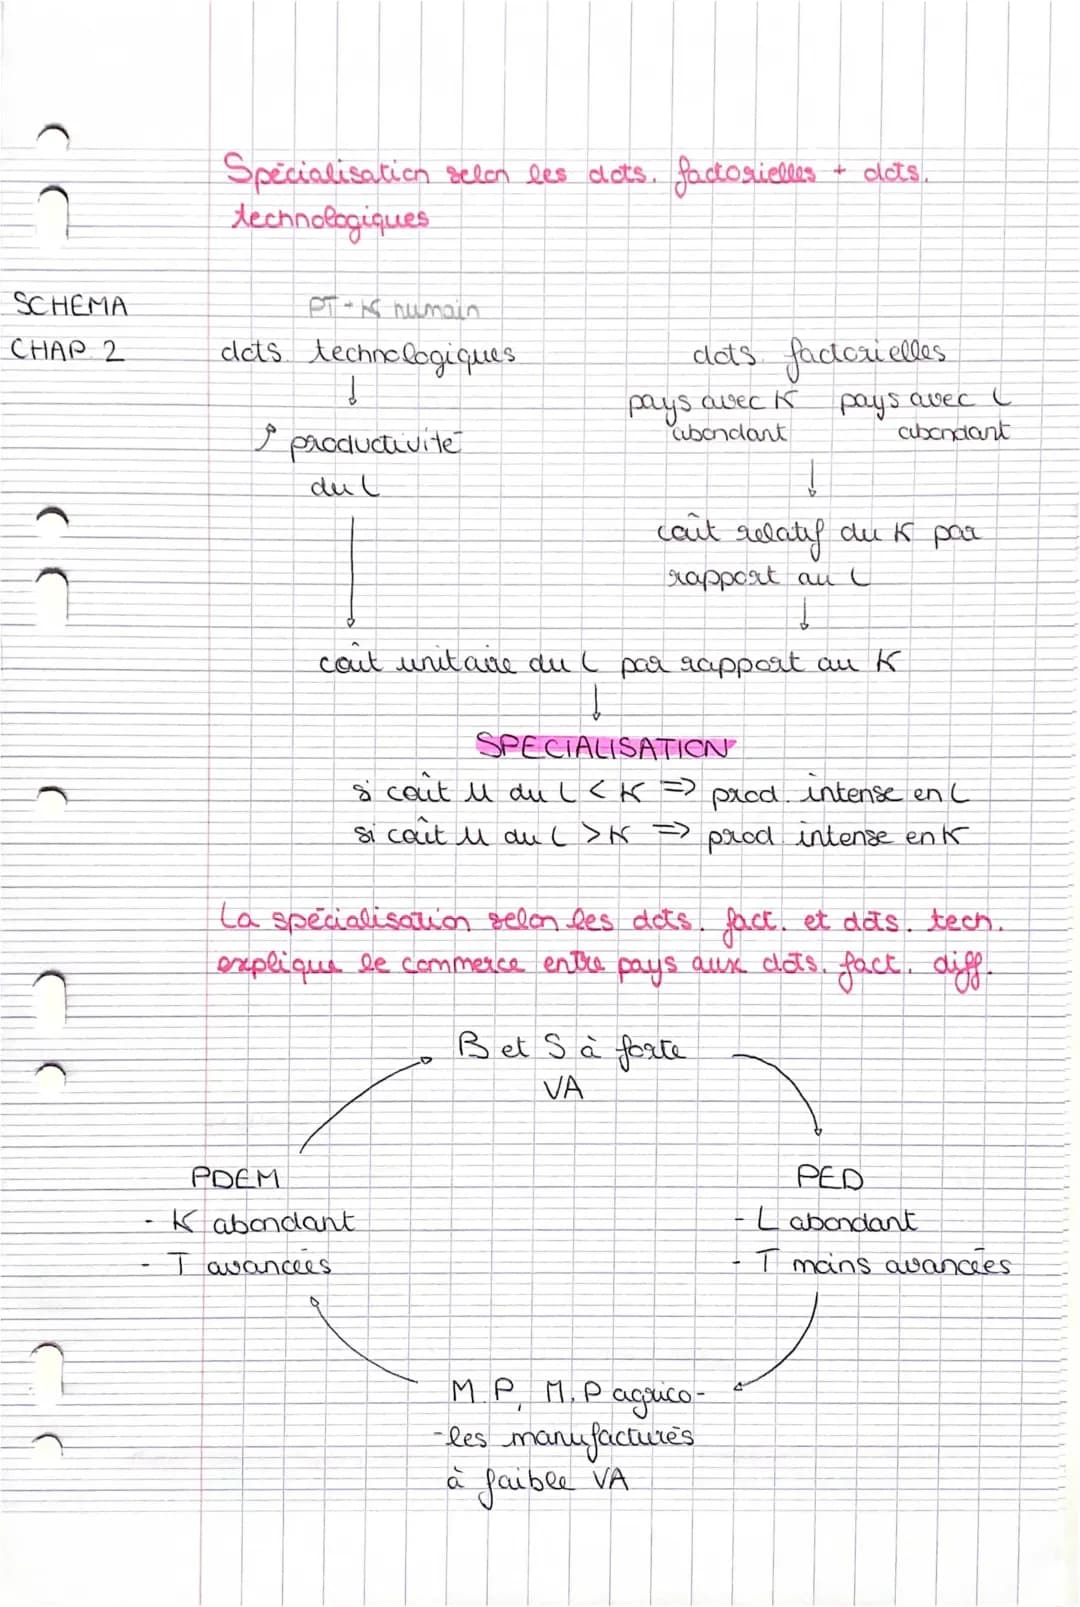 Spécialisation selon les dots. factorielles + dots.
technologiques
SCHEMA
CHAP 2
PT - K humain
dots. technologiques
↓
↗ productivité
du L
↓
dots. factorielles
pays avec K abondant
pays avec L abondant
↓
coût relatif du K par
rapport au L
↓
coût unitaire du L par rapport au K
↓
SPECIALISATION
si coût U du L < K => prod. intense en L
si coût U du L > K => prod. intense en K
La spécialisation selon les dots. fact. et dots. tech.
explique le commerce entre pays aux dots. fact. diff.
B et S à forte
VA
PDEM
- K abondant
- T avancées
PED
- L abondant
- T moins avancées
M.P, M.P agrico-
-les manufacturés
à faible VA